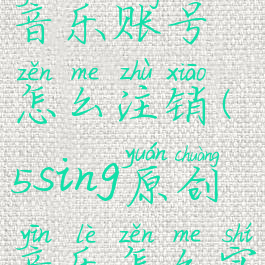 音乐账号
zěn me zhù xiāo
怎么注销(
yuán chuàng
5sing原创
yīn lè zěn me shí
音乐怎么实